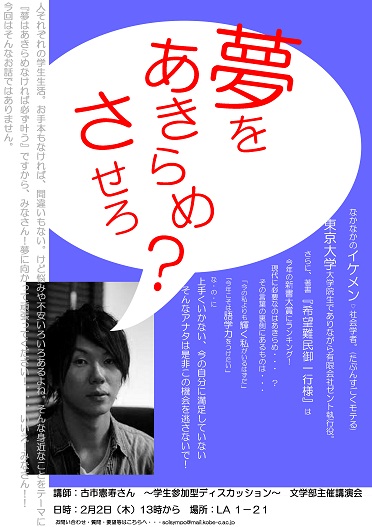 夢を
あきらめ
させろ
?
なかなかのイケメン。社会学者。(たぶんすごくモテる)
東京大学大学院生でありながら有限会社ゼント執行役。
さらに、著書『希望難民御一行様』は
今年の新書大賞にランキング!
現代に必要なのはあきらめ・・・?
その言葉の裏側にあるものは・・・
「今の私よりも輝く私がいるはずだ」
「今年こそは語学力をつけたい」
な・の・に
上手くいかない、今の自分に満足していない
そんなアナタは是非この機会を逃さないで!
人それぞれの学生生活。お手本もなければ、間違いもない。けど悩みや不安いろいろあるよね。そんな身近なことをテーマに
『夢はあきらめなければ必ず叶う』ですから、みなさん!夢に向かって
今回はそんなお話ではありません。
講師:古市憲寿さん ~学生参加型ディスカッション~ 文学部主催講演会
日時:2月2日(木)13時から 場所:LA 1-21
お問い合わせ・質問・要望等はこちらへ・・・sclsympo@mail.kobe-c.ac.jp